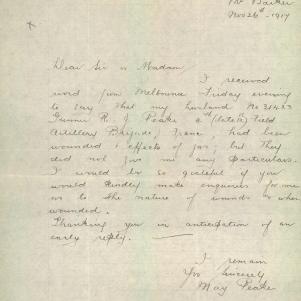 Mt Barker
Nov 26th - 1917
Dear Sir or Madam
I received
word from Melbourne Friday evening
to say that my husband No 31423
Gunner R. J. Peake 2nd (late) Field
Artillery Brigade, France had been
wounded & effects of gas; but they
did not give me any particulars.
I would be so grateful if you
would kindly make enquiries for me
as to the nature of wounds & when
wounded.
Thanking you in anticipation of an
early reply. —
I remain
Yrs Sincerely
May Peake